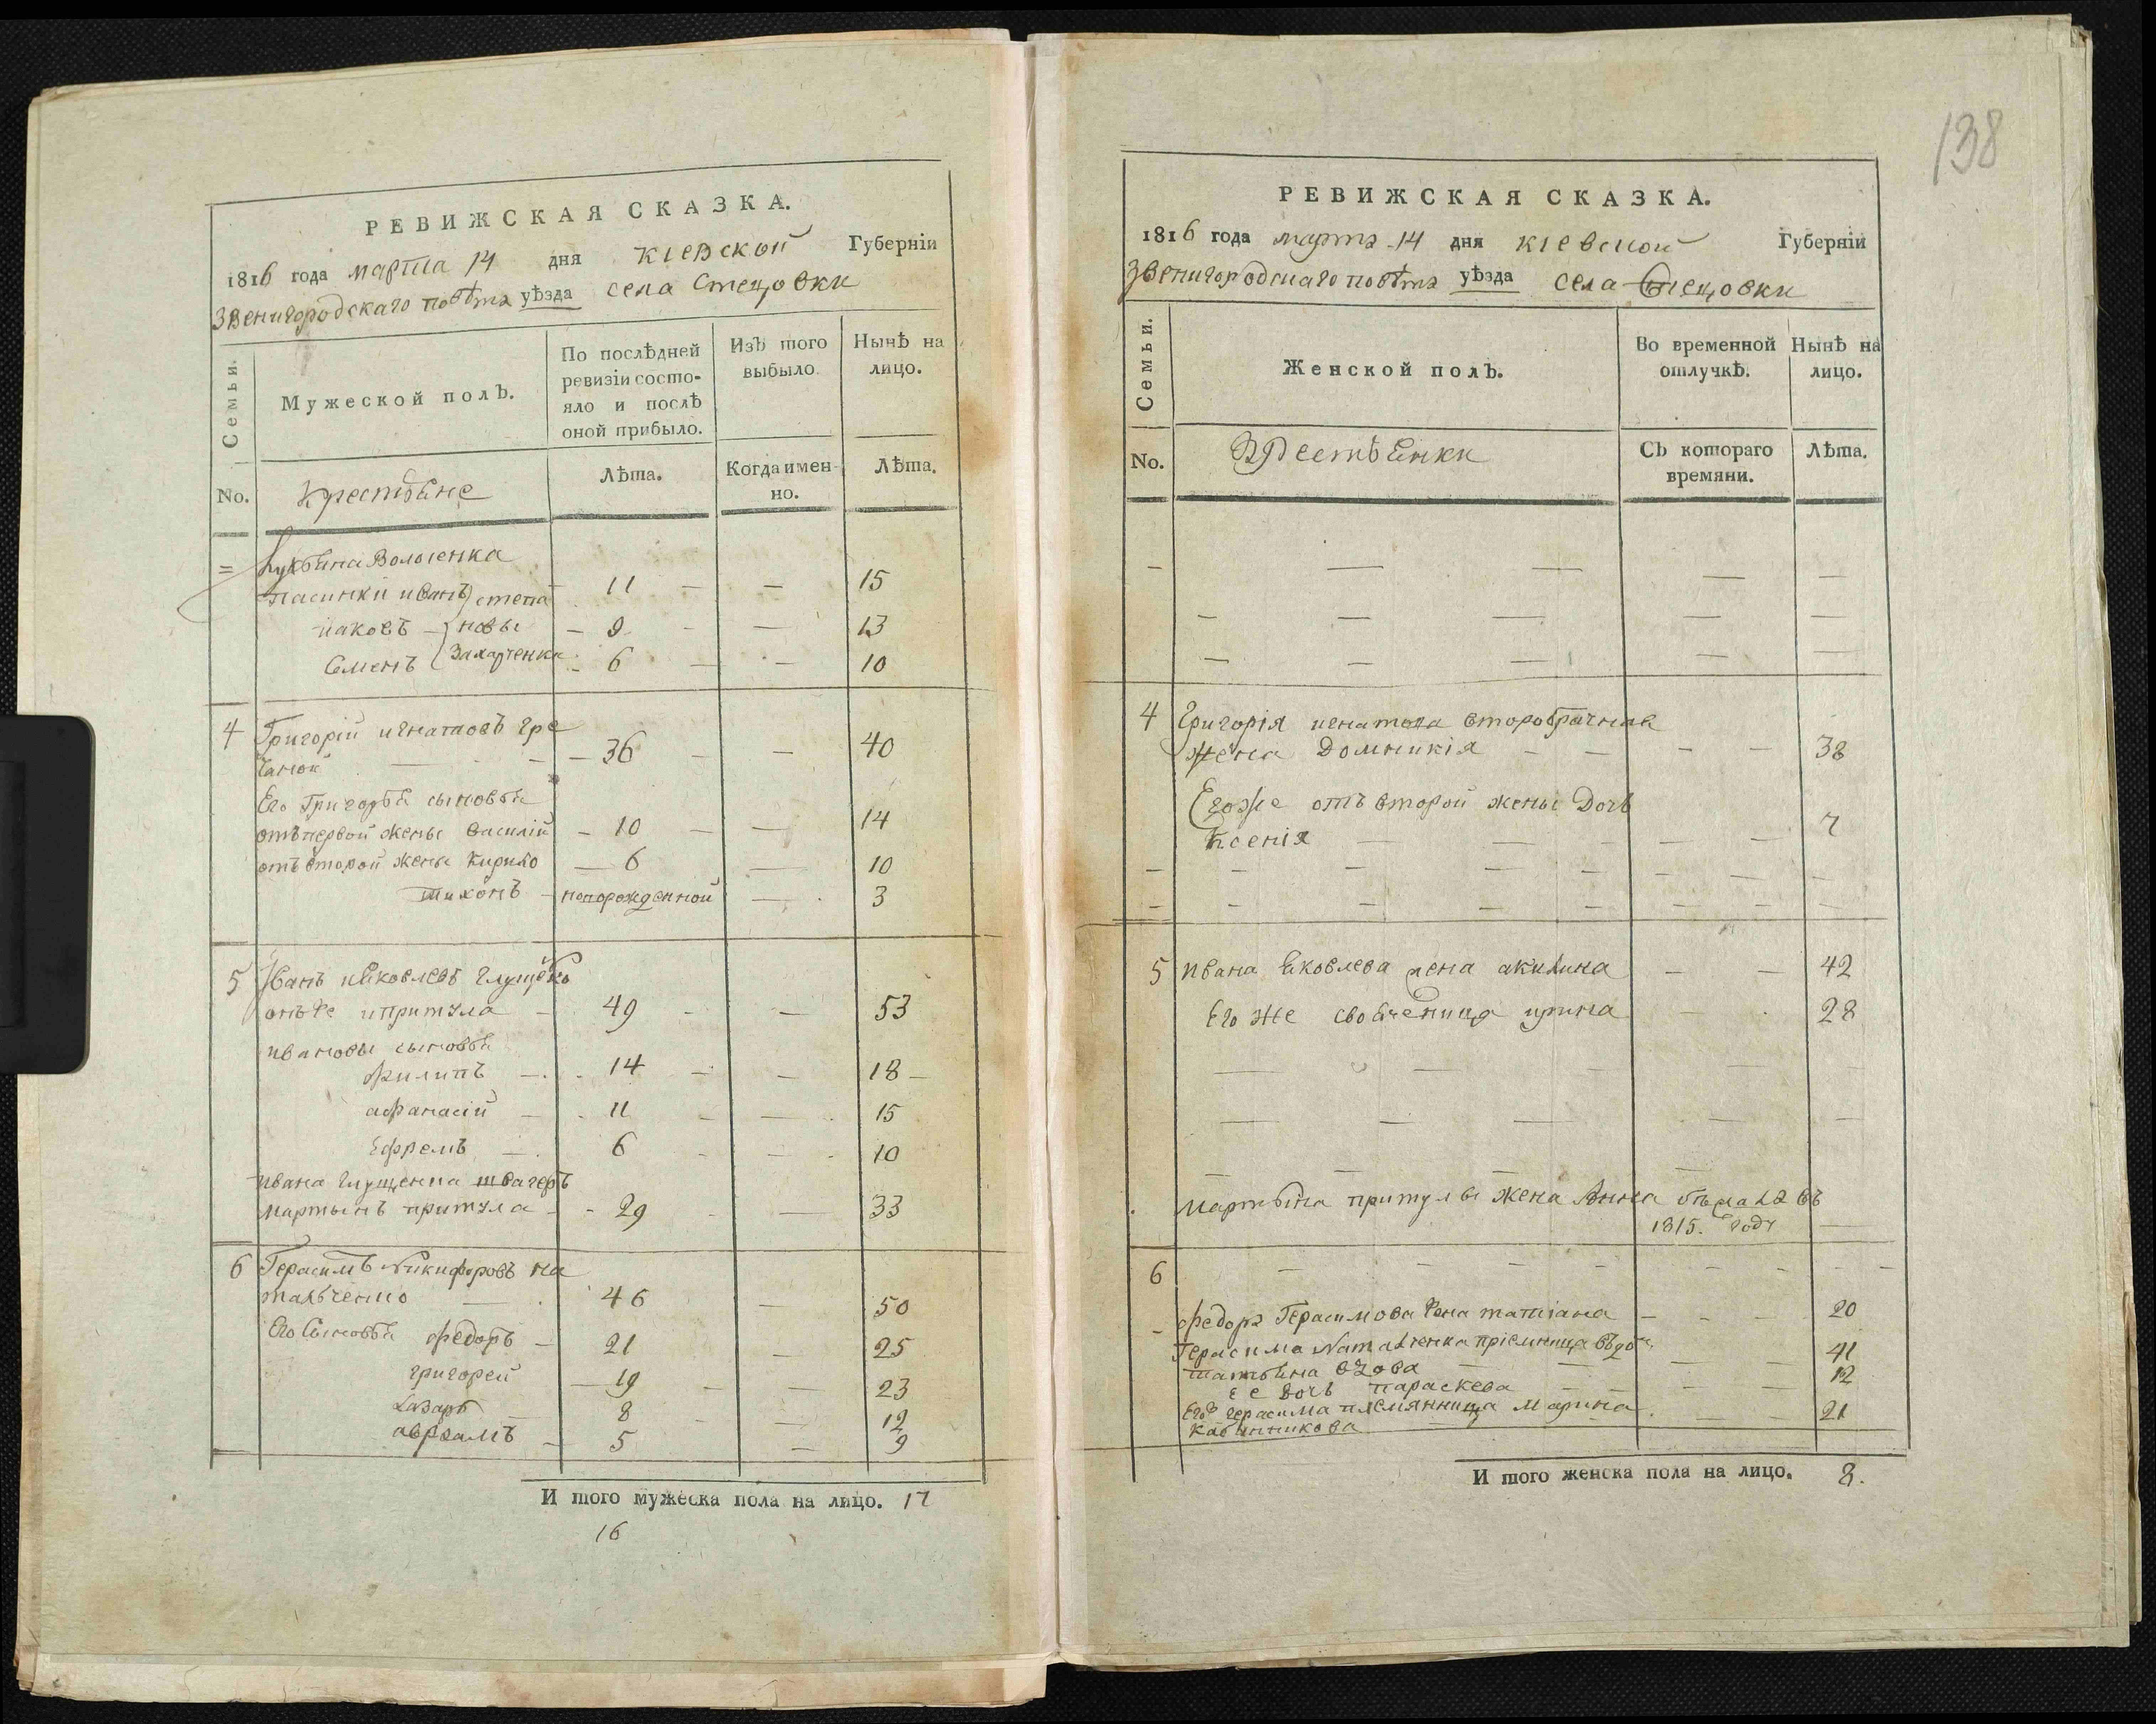 138
РЕВИЖСКАЯ СКАЗКА.
1816 года марта 14 дня Кіевской Губерніи
Звенигородскаго повѣта уѣзда села Стецовки
Семьи.
Мужеской полъ.
По послѣдней ревизіи состо-
яло и послѣ оной прибыло.
Изъ того выбыло.
Нынѣ на лицо.
No.
Крестьяне
Лѣта.
Когда имен-
но.
Лѣта.
= Лукьяна
пасинки Иванъ степа 11 — — 15
Иаковъ новы — 9 — — 13
Семенъ Захарченки — 6 — — 10
4 Григорій Игнатовъ Гре
— 36 — — 40
Его Григорья сыновья
отъ первой жены Василій — 10 — — 14
отъ второй жены Кирило — 6 — 10
Тихонъ — новорожденной — 3
5 Иванъ Яковлевъ Глущенко
онъ же и притула — 49 — — 53
Ивановы сыновья
Филипъ — 14 — — 18
Афанасій — 11 — — 15
Ефремъ — 6 — — 10
Ивана Глущенка швагеръ
Мартынъ притула — 29 — — 33
6 Герасимъ Никифоровъ На
тальченко — 46 — 50
Его Сыновья Федоръ — 21 — 25
Григорей — 19 — — 23
Лазарь 8 — 12
Авраамъ — 5 — 9
И того мужеска пола на лицо. 17
16
РЕВИЖСКАЯ СКАЗКА.
1816 года марта 14 дня Кіевской Губерніи
Звенигородскаго повѣта уѣзда села Стецовки
Семьи.
Женской полъ.
Во временной отлучкѣ.
Нынѣ на лицо.
No.
Съ котораго времяни.
Лѣта.
4 Григорія Игнатова второбрачная
жена Домникія — — — — 38
Егоже отъ второй жены Дочь
Ксенія — — — — — 7
5 Ивана Яковлева жена Акилина — — 42
Его же свояченица Ирина — 28
Мартына притулы жена Анна бѣжала въ
1815. году —
6
Федора Герасимова жена татіана — — — 20
Герасима Наталченка пріемница вдова
Татьяна — — 41
Ее Дочь Параскева — — — 12
Его Герасима племянница Марина — — 21
И того женска пола на лицо. 8.